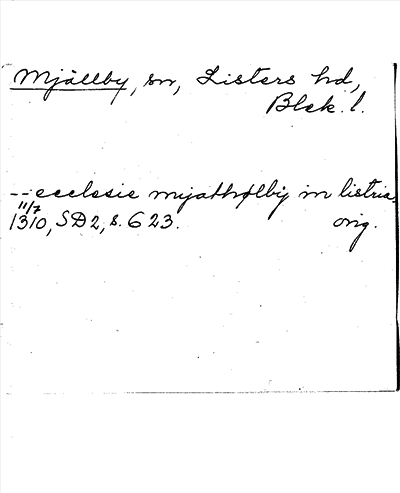 Mjällby, sn, Listers hd,
Blek. l.
--ecclesie mijathølbij in listria.
11/7
1310, SD2, s. 623. orig.